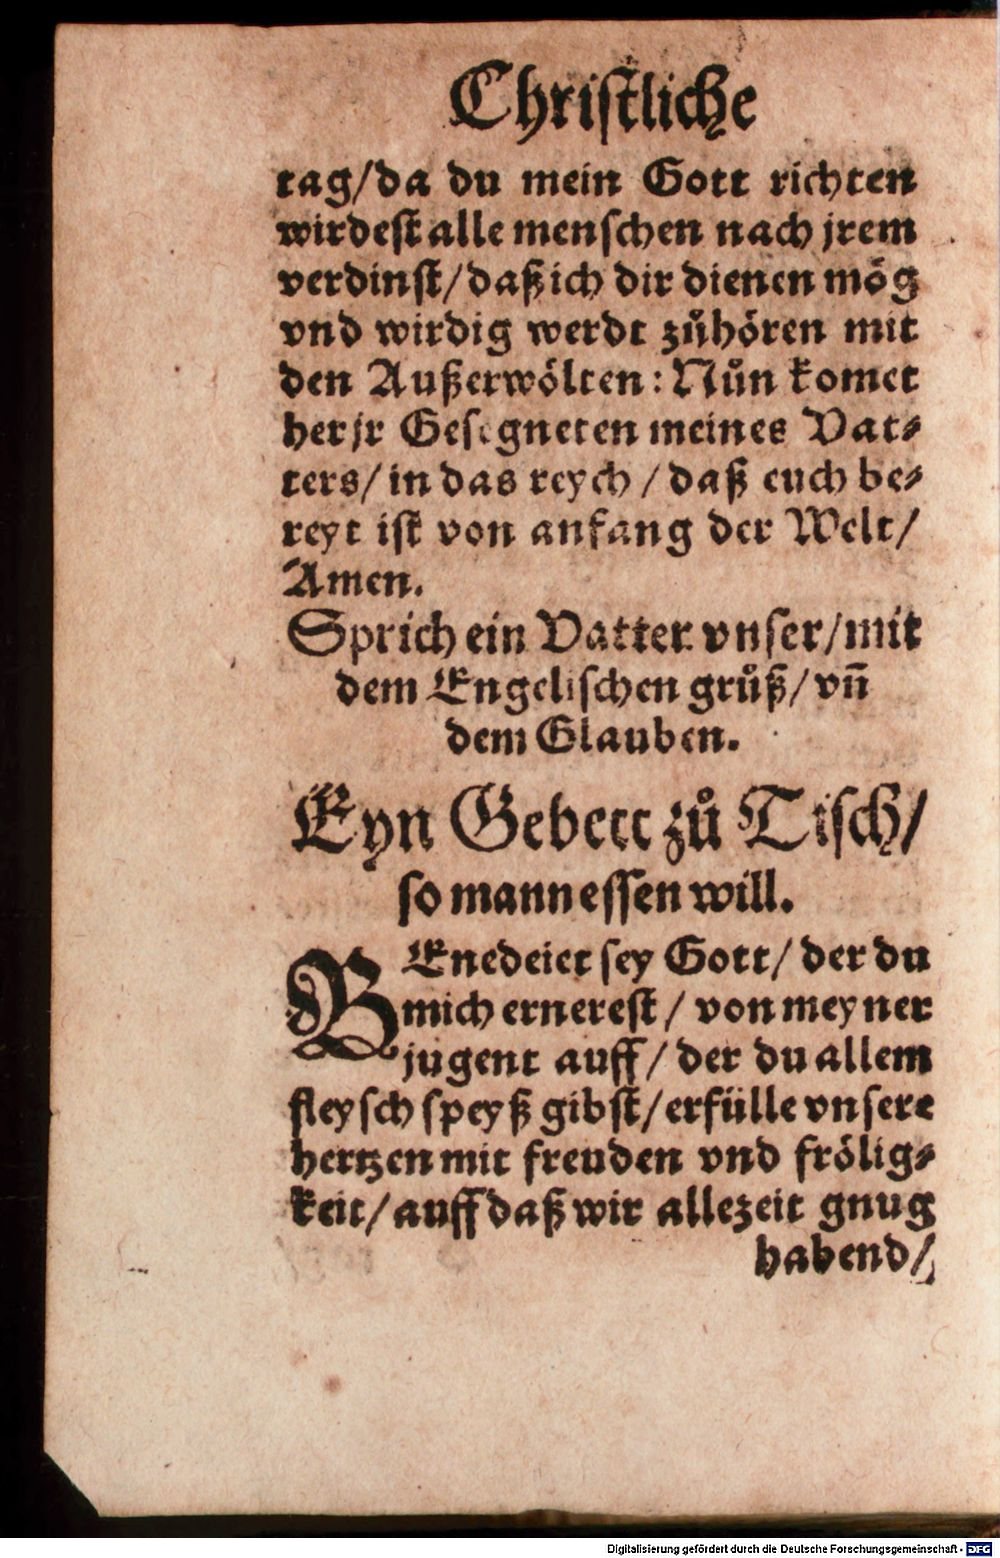 Christliche
tag/da du mein Gott richten
wirdest alle menschen nach jrem
verdinst/daß ich dir dienen mög
vnd wirdig werdt zůhören mit
den Außerwölten: Nůn komet
her jr Gesegneten meines Vat⸗
ters/ in das reych / daß euch be⸗
reyt ist von anfang der Welt/
Amen.
Sprich ein Vatter vnser/mit
dem Engelischen grůß/ vñ
dem Glauben.
Eyn Gebett zů Tisch/
so mann essen will.
BEnedeiet sey Gott/ der du
mich ernerest / von meyner
jugent auff/ der du allem
fleysch speyß gibst/erfülle vnsere
hertzen mit freuden vnd frölig⸗
keit/auff daß wir allezeit gnug
habend/
Digitalisierung gefördert durch die Deutsche Forschungsgemeinschaft - DFG